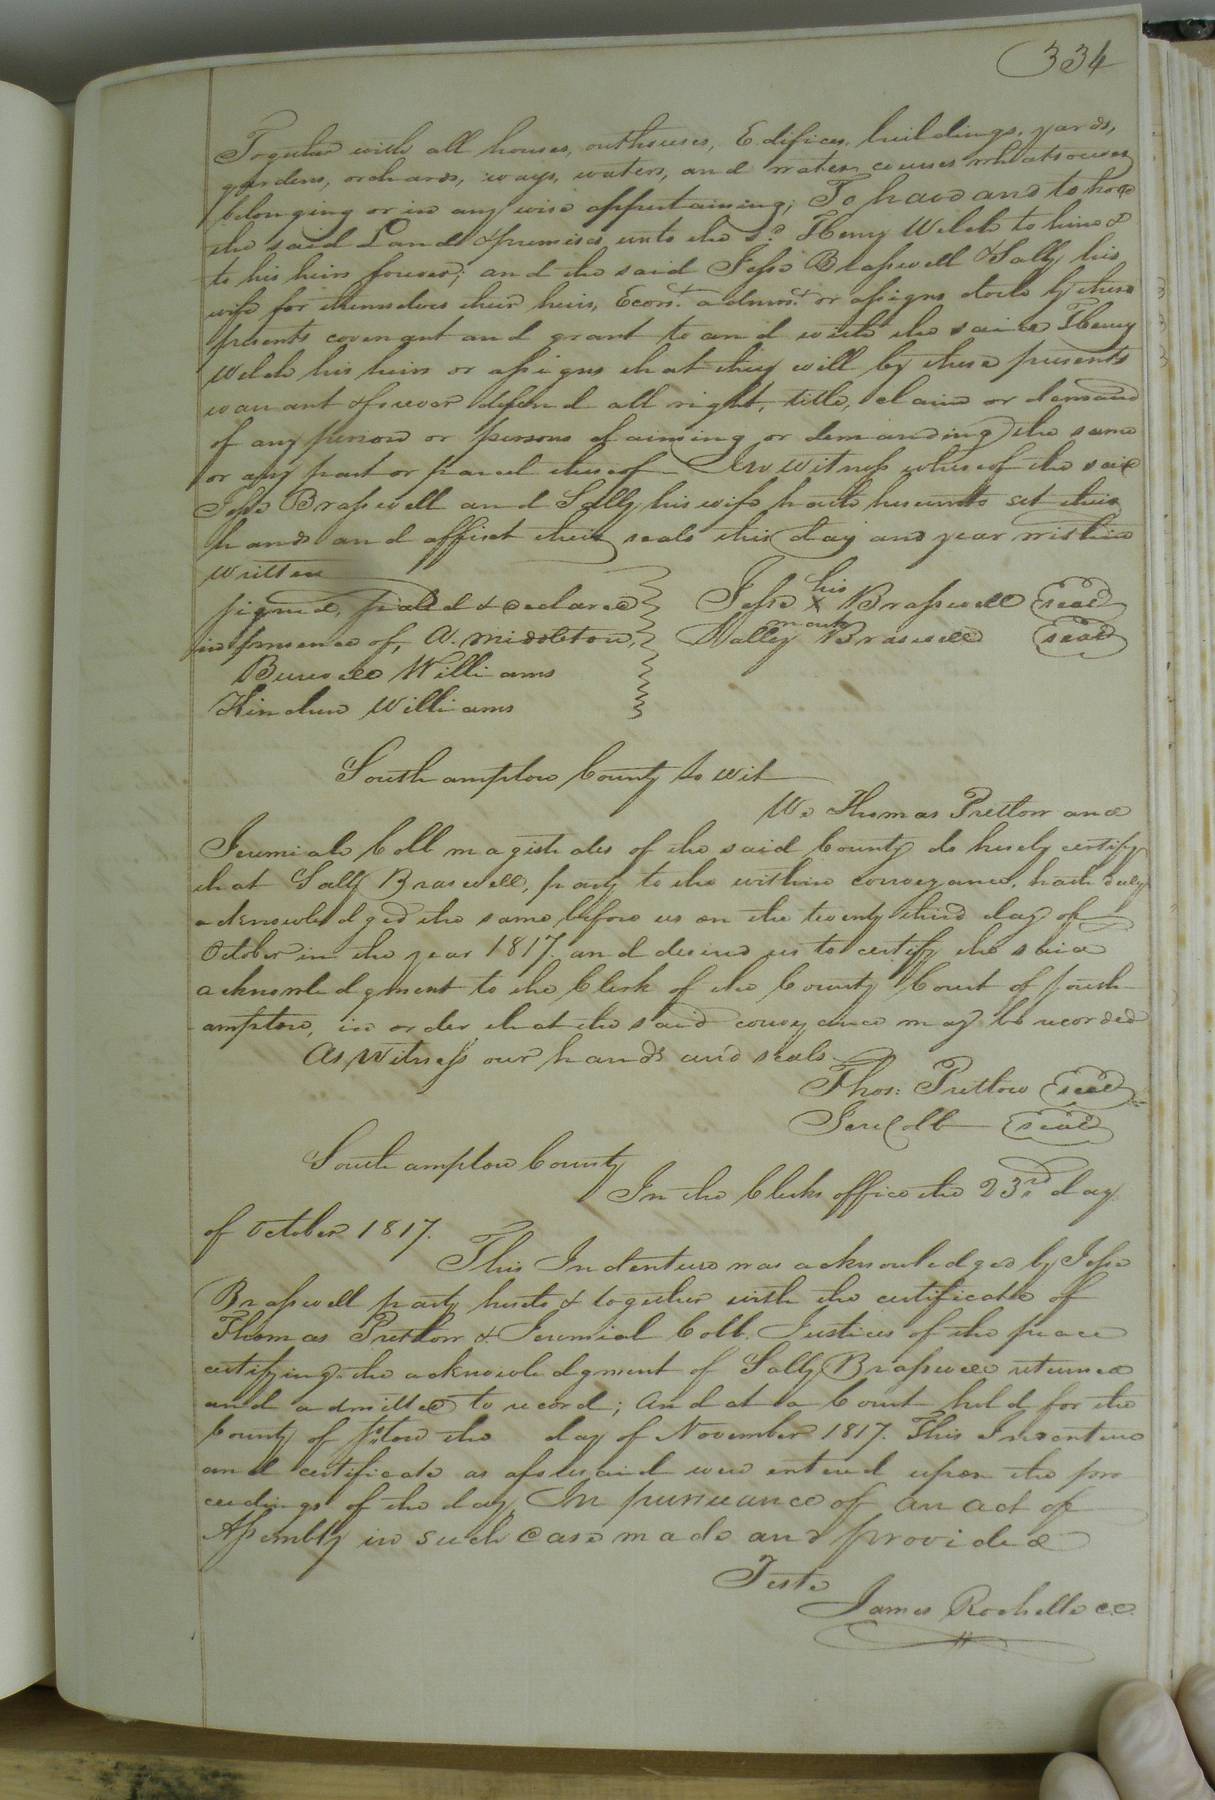 334
Together with all houses, outhouses, Edifices, buildings, yards,
gardens, orchards, ways, waters, and water courses whatsoever
belonging or in any wise appertaining; To have and to hold
the said Land & premises unto the sd. Henry Welch to him &
to his heirs forever; and the said Jesse Brasswell & Sally his
wife for themselves their heirs, Ecors. admors. or assigns doth by these
presents covenant and grant to and with the said Henry
Welch his heirs or assigns that they will by these presents
warrant & forever defend all right, title, claim or demand
of any person or persons claiming or demanding the same
or any part or parcel thereof - In witness whereof the said
Jesse Brasswell and Sally his wife hath hereunto set their
hands and affixt their seals this day and year within
written
signed, sealed & declared
in presence of, A. Middleton,
Burwell Williams
Kindred Williams
Jesse his X mark Brasswell seal
Salley Braswell seal
Southampton County to wit
We Thomas Pretlow and
Jeremiah Cobb magistrates of the said County do hereby certify
that Sally Braswell, party to the within conveyance, hath duly
acknowledged the same before us on the twenty third day of
October in the year 1817. and desired us to certify the said
acknowledgment to the Clerk of the County Court of south
ampton, in order that the said conveyance may be recorded
As Witness our hands and seals
Thos: Pretlow seal
Jere Cobb seal
Southampton County
In the Clerks office the 23rd day
of October 1817.
This Indenture was acknowledged by Jesse
Brasswell party hereto & together with the certificate of
Thomas Pretlow & Jeremiah Cobb. Justices of the peace
certifying the acknowledgment of Sally Brasswell returned
and admitted to record; And at a Court held for the
County of s:ton the day of November 1817. This Indenture
and certificate as aforesaid were entered upon the pro
ceedings of the day, In pursuance of an act of
Assembly in such case made and provided
Teste
James Rochelle cc.